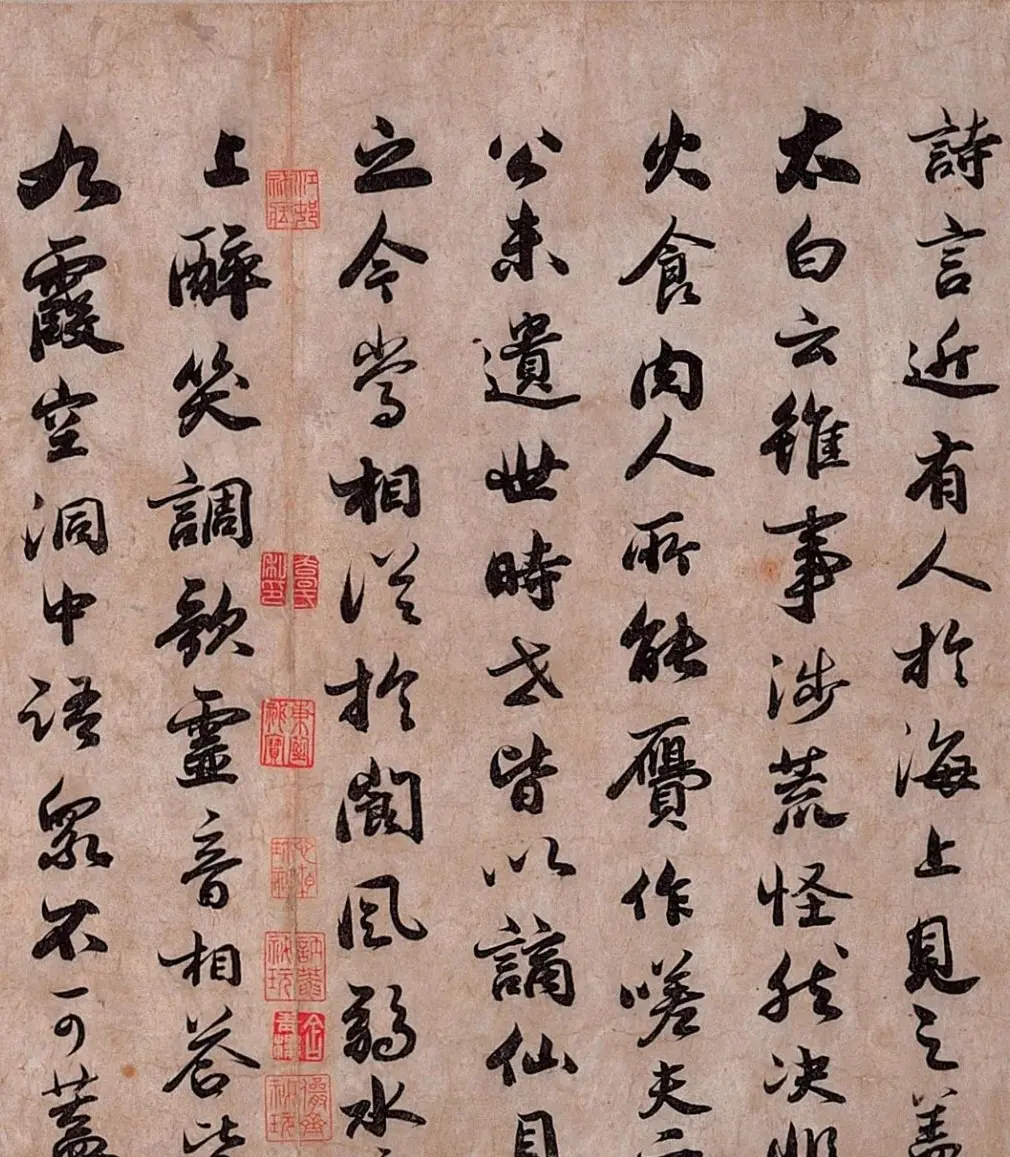 詩言近有人於海上見之蓋
太白云雖事涉荒怪然决非
火食肉人所能贋作嗟夫二
公未遺世時世皆以謫仙目
之今當相從於閬風弱水
上醉笑調歌靈音相荅此
九霞空洞中語衆不可蓋